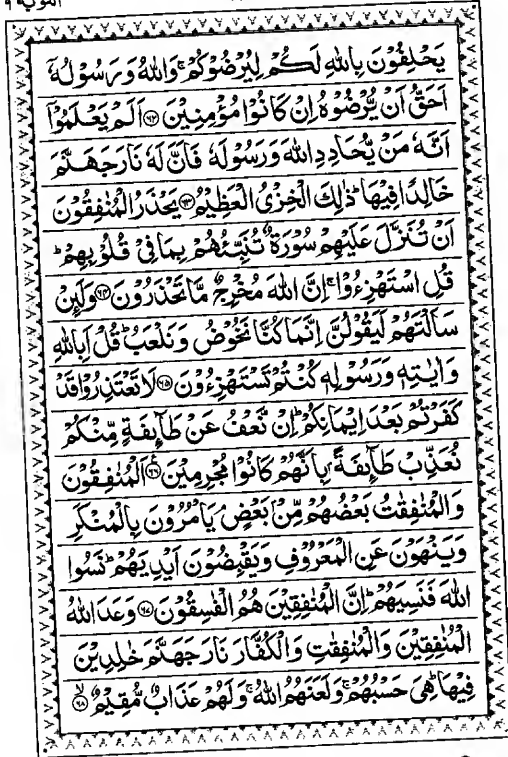 التوبة ٩
يَحْلِفُوْنَ بِاللّٰهِ لَكُمْ لِيُرْضُوْكُمْ ۚ وَاللّٰهُ وَرَسُوْلُهٗۤ
اَحَقُّ اَنْ يُّرْضُوْهُ اِنْ كَانُوْا مُؤْمِنِيْنَ ﴿۶۲﴾ اَلَمْ يَعْلَمُوْۤا
اَنَّهٗ مَنْ يُّحَادِدِ اللّٰهَ وَرَسُوْلَهٗ فَاَنَّ لَهٗ نَارَ جَهَنَّمَ
خَالِدًا فِيْهَا ؕ ذٰلِكَ الْخِزْىُ الْعَظِيْمُ ﴿۶۳﴾ يَحْذَرُ الْمُنٰفِقُوْنَ
اَنْ تُنَزَّلَ عَلَيْهِمْ سُوْرَةٌ تُنَبِّئُهُمْ بِمَا فِىْ قُلُوْبِهِمْ ؕ
قُلِ اسْتَهْزِءُوْا ۚ اِنَّ اللّٰهَ مُخْرِجٌ مَّا تَحْذَرُوْنَ ﴿۶۴﴾ وَلَئِنْ
سَاَلْتَهُمْ لَيَقُوْلُنَّ اِنَّمَا كُنَّا نَخُوْضُ وَنَلْعَبُ ؕ قُلْ اَبِاللّٰهِ
وَاٰيٰتِهٖ وَرَسُوْلِهٖ كُنْتُمْ تَسْتَهْزِءُوْنَ ﴿۶۵﴾ لَا تَعْتَذِرُوْا قَدْ
كَفَرْتُمْ بَعْدَ اِيْمَانِكُمْ ؕ اِنْ نَّعْفُ عَنْ طَآئِفَةٍ مِّنْكُمْ
نُعَذِّبْ طَآئِفَةًۢ بِاَنَّهُمْ كَانُوْا مُجْرِمِيْنَ ﴿۶۶﴾ اَلْمُنٰفِقُوْنَ
وَالْمُنٰفِقٰتُ بَعْضُهُمْ مِّنْۢ بَعْضٍ ۘ يَاْمُرُوْنَ بِالْمُنْكَرِ
وَيَنْهَوْنَ عَنِ الْمَعْرُوْفِ وَيَقْبِضُوْنَ اَيْدِيَهُمْ ؕ نَسُوا
اللّٰهَ فَنَسِيَهُمْ ؕ اِنَّ الْمُنٰفِقِيْنَ هُمُ الْفٰسِقُوْنَ ﴿۶۷﴾ وَعَدَ اللّٰهُ
الْمُنٰفِقِيْنَ وَالْمُنٰفِقٰتِ وَالْكُفَّارَ نَارَ جَهَنَّمَ خٰلِدِيْنَ
فِيْهَا ؕ هِىَ حَسْبُهُمْ ۚ وَلَعَنَهُمُ اللّٰهُ ۚ وَلَهُمْ عَذَابٌ مُّقِيْمٌ ﴿۶۸﴾